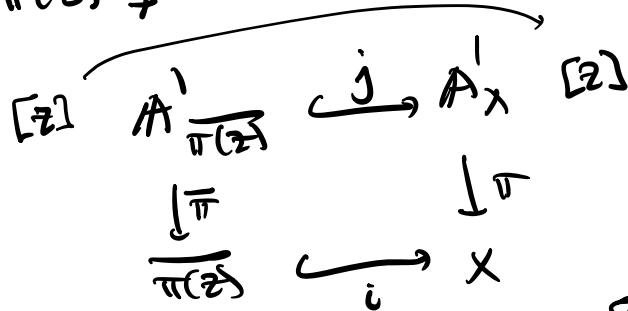 [Z] 𝔸¹_{\overline{π(Z)}} j 𝔸¹_X [Z]
\overline{π} π
\overline{π(Z)} i X